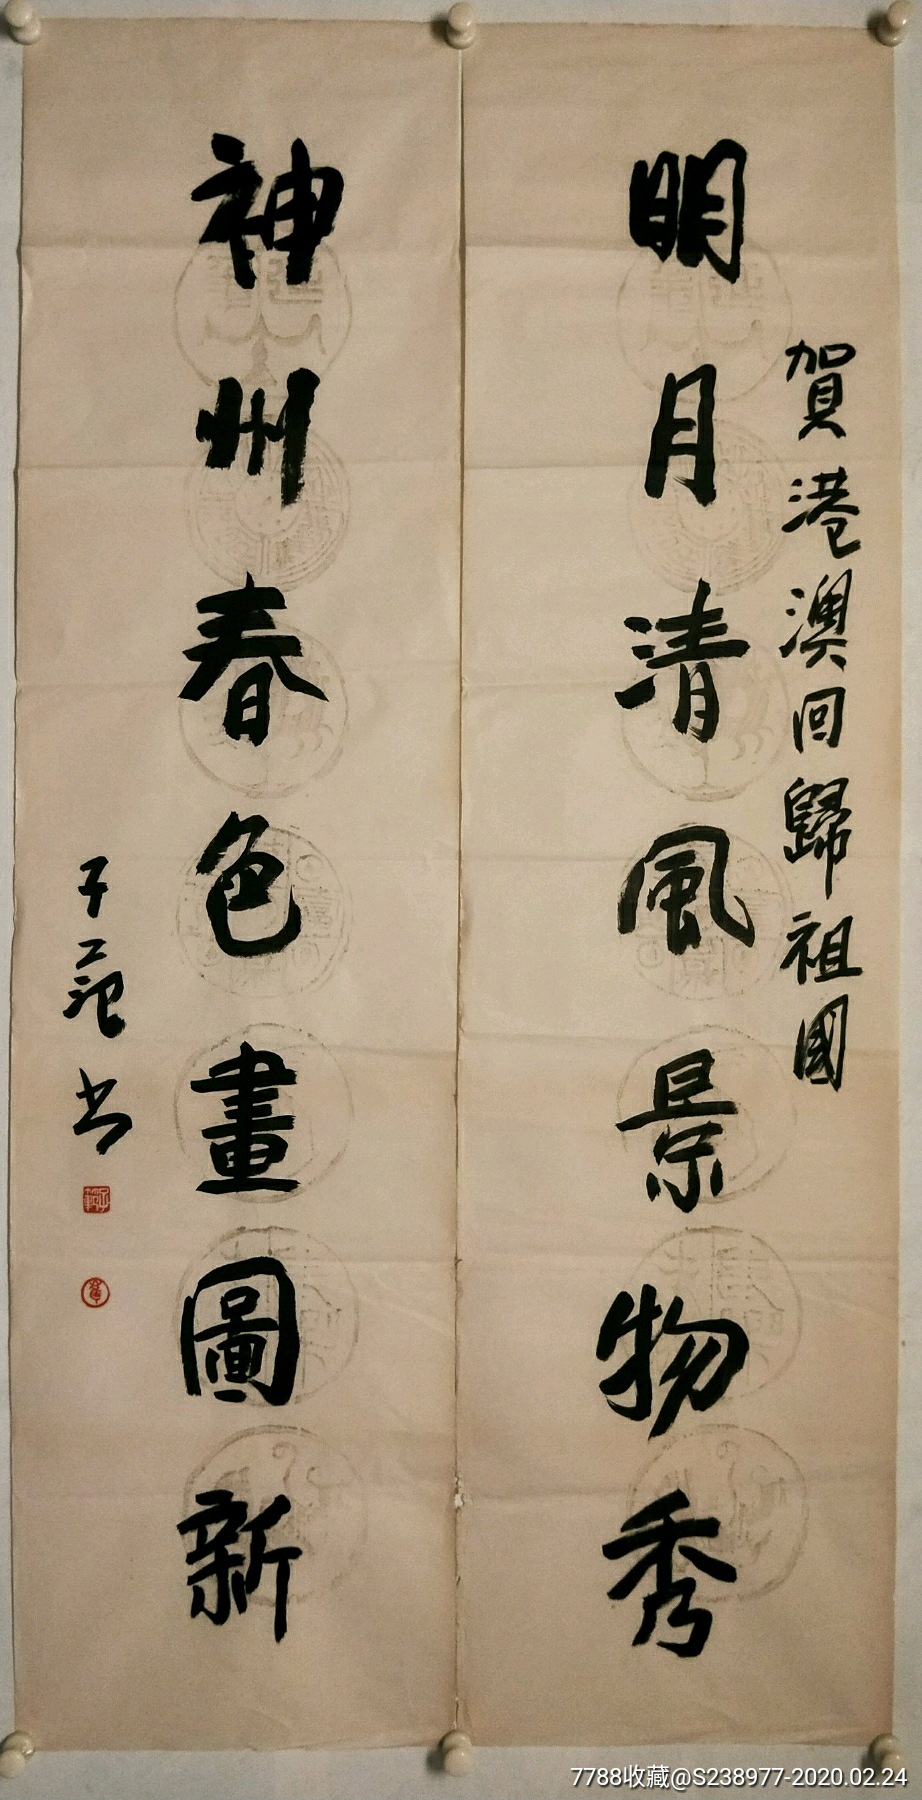 賀港澳回歸祖國
明月清風景物秀
神州春色畫圖新
子范书
7788收藏@S238977-2020.02.24